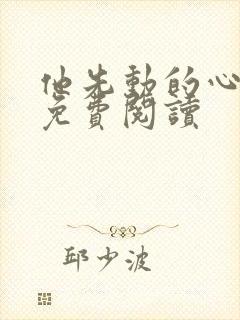 他先動的心
免費閱讀
邱少波